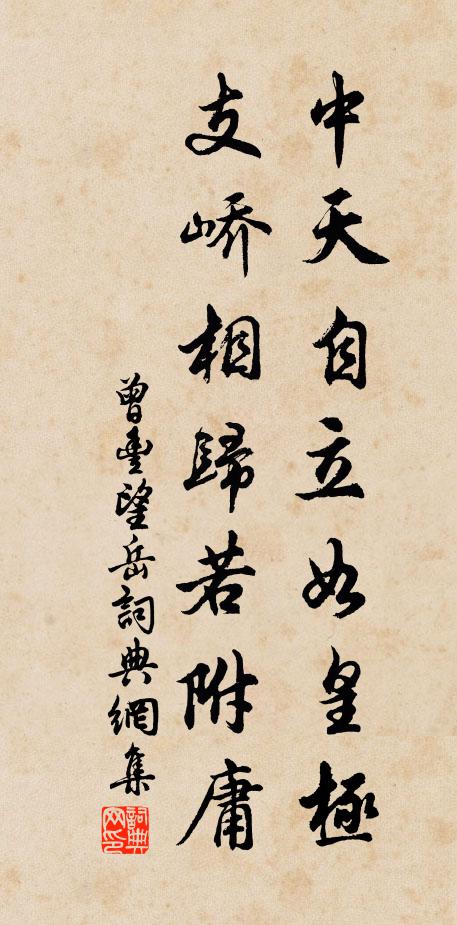 中天自立如皇極
支嶠相歸若附庸
曾豊望岳詞典網集
詞典网印